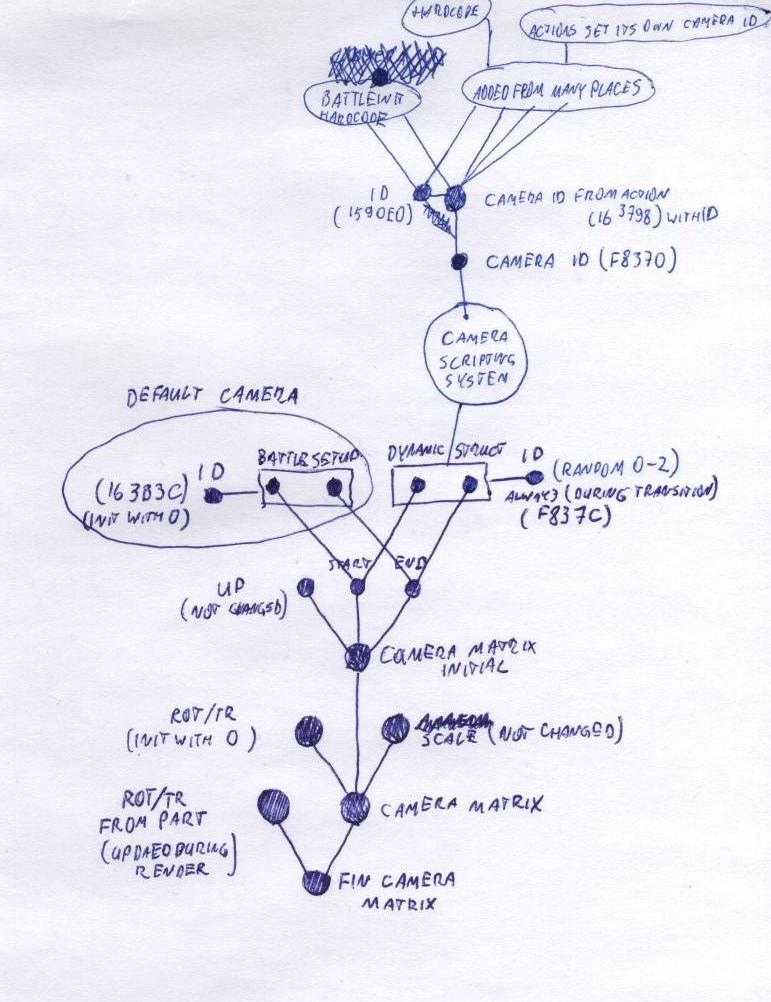 HARDCODE
ACTIONS SET ITS OWN CAMERA ID
BATTLEINIT
HARDCODE
ADDED FROM MANY PLACES
ID
(1590E0)
CAMERA ID FROM ACTION
(163798) WITH ID
CAMERA ID (F8370)
CAMERA
SCRIPTING
SYSTEM
DEFAULT CAMERA
BATTLE SETUP
DYNAMIC STRUCT
ID
(163B3C)
(INIT WITH 0)
ID
(RANDOM 0-2)
ALWAYS (DURING TRANSITION)
(F837C)
START
END
UP
(NOT CHANGED)
CAMERA MATRIX
INITIAL
ROT/TR
(INIT WITH 0)
SCALE (NOT CHANGED)
ROT/TR
FROM PART
(UPDAEDDURING
RENDER)
CAMERA MATRIX
FIN CAMERA
MATRIX